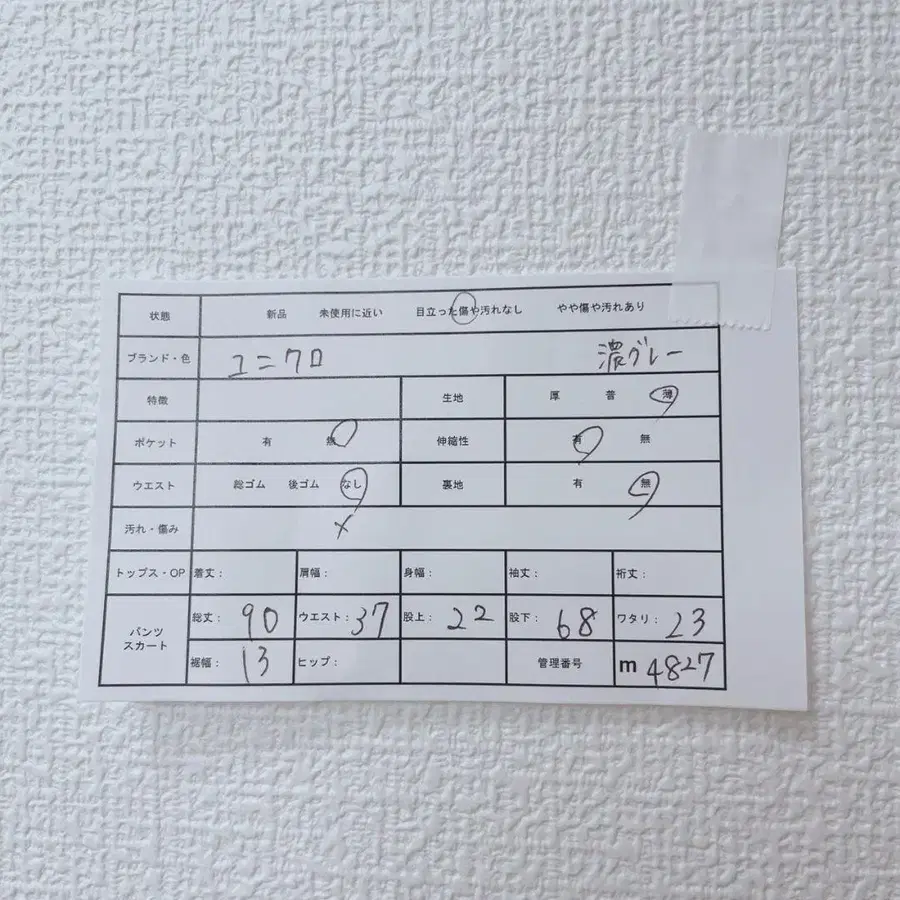 状態 新品 未使用に近い 目立った傷や汚れなし やや傷や汚れあり
ブランド・色 ユニクロ 濃グレー
特徴 生地 厚 普 薄
ポケット 有 無 伸縮性 有 無
ウエスト 総ゴム 後ゴム なし 裏地 有 無
汚れ・傷み ×
トップス・OP 着丈: 肩幅: 身幅: 袖丈: 裄丈:
パンツ スカート 総丈: 90 ウエスト: 37 股上: 22 股下: 68 ワタリ: 23
裾幅: 13 ヒップ: 管理番号 m 4827